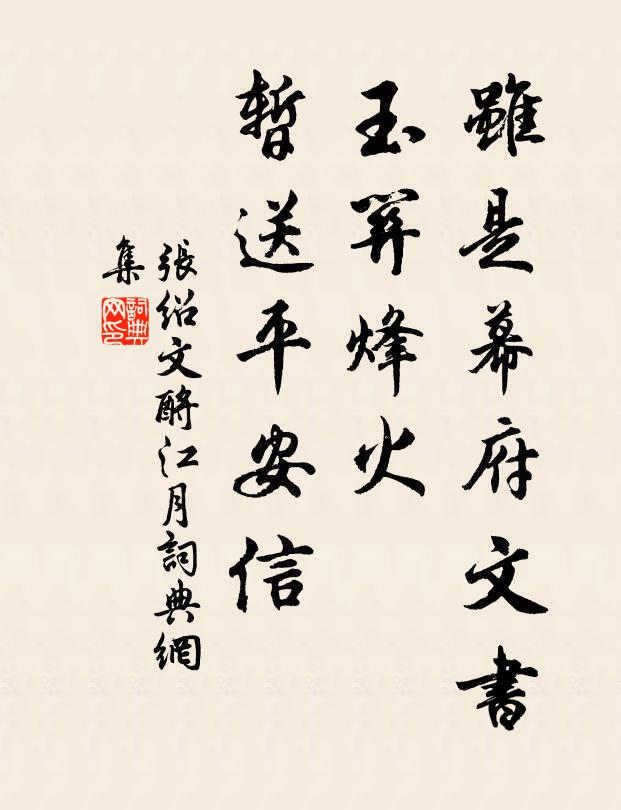 雖是幕府文書
玉關烽火
暫送平安信
張紹文酹江月詞典網
集
詞典网印